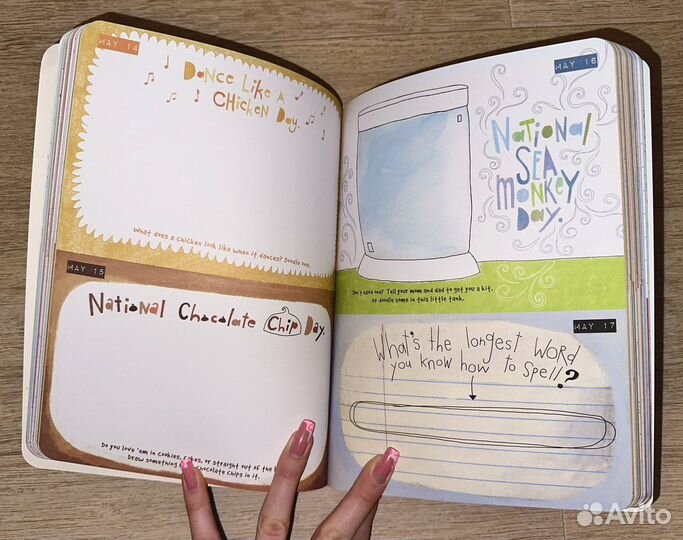 MAY 14
DANCE LIKE A
CHICKEN DAY.
What does a chicken look like when it dances? Doodle one.
MAY 15
National Chocolate Chip Day.
Do you love 'em in cookies, cakes, or straight out of the
Draw something chocolate chips in it.
MAY 16
NaTional
SEA
monKey
Day.
Don't have one? Tell your mom and dad to get you a kit,
or doodle some in this little tank.
MAY 17
What's the longest WORD
you know how to spell?
Avito